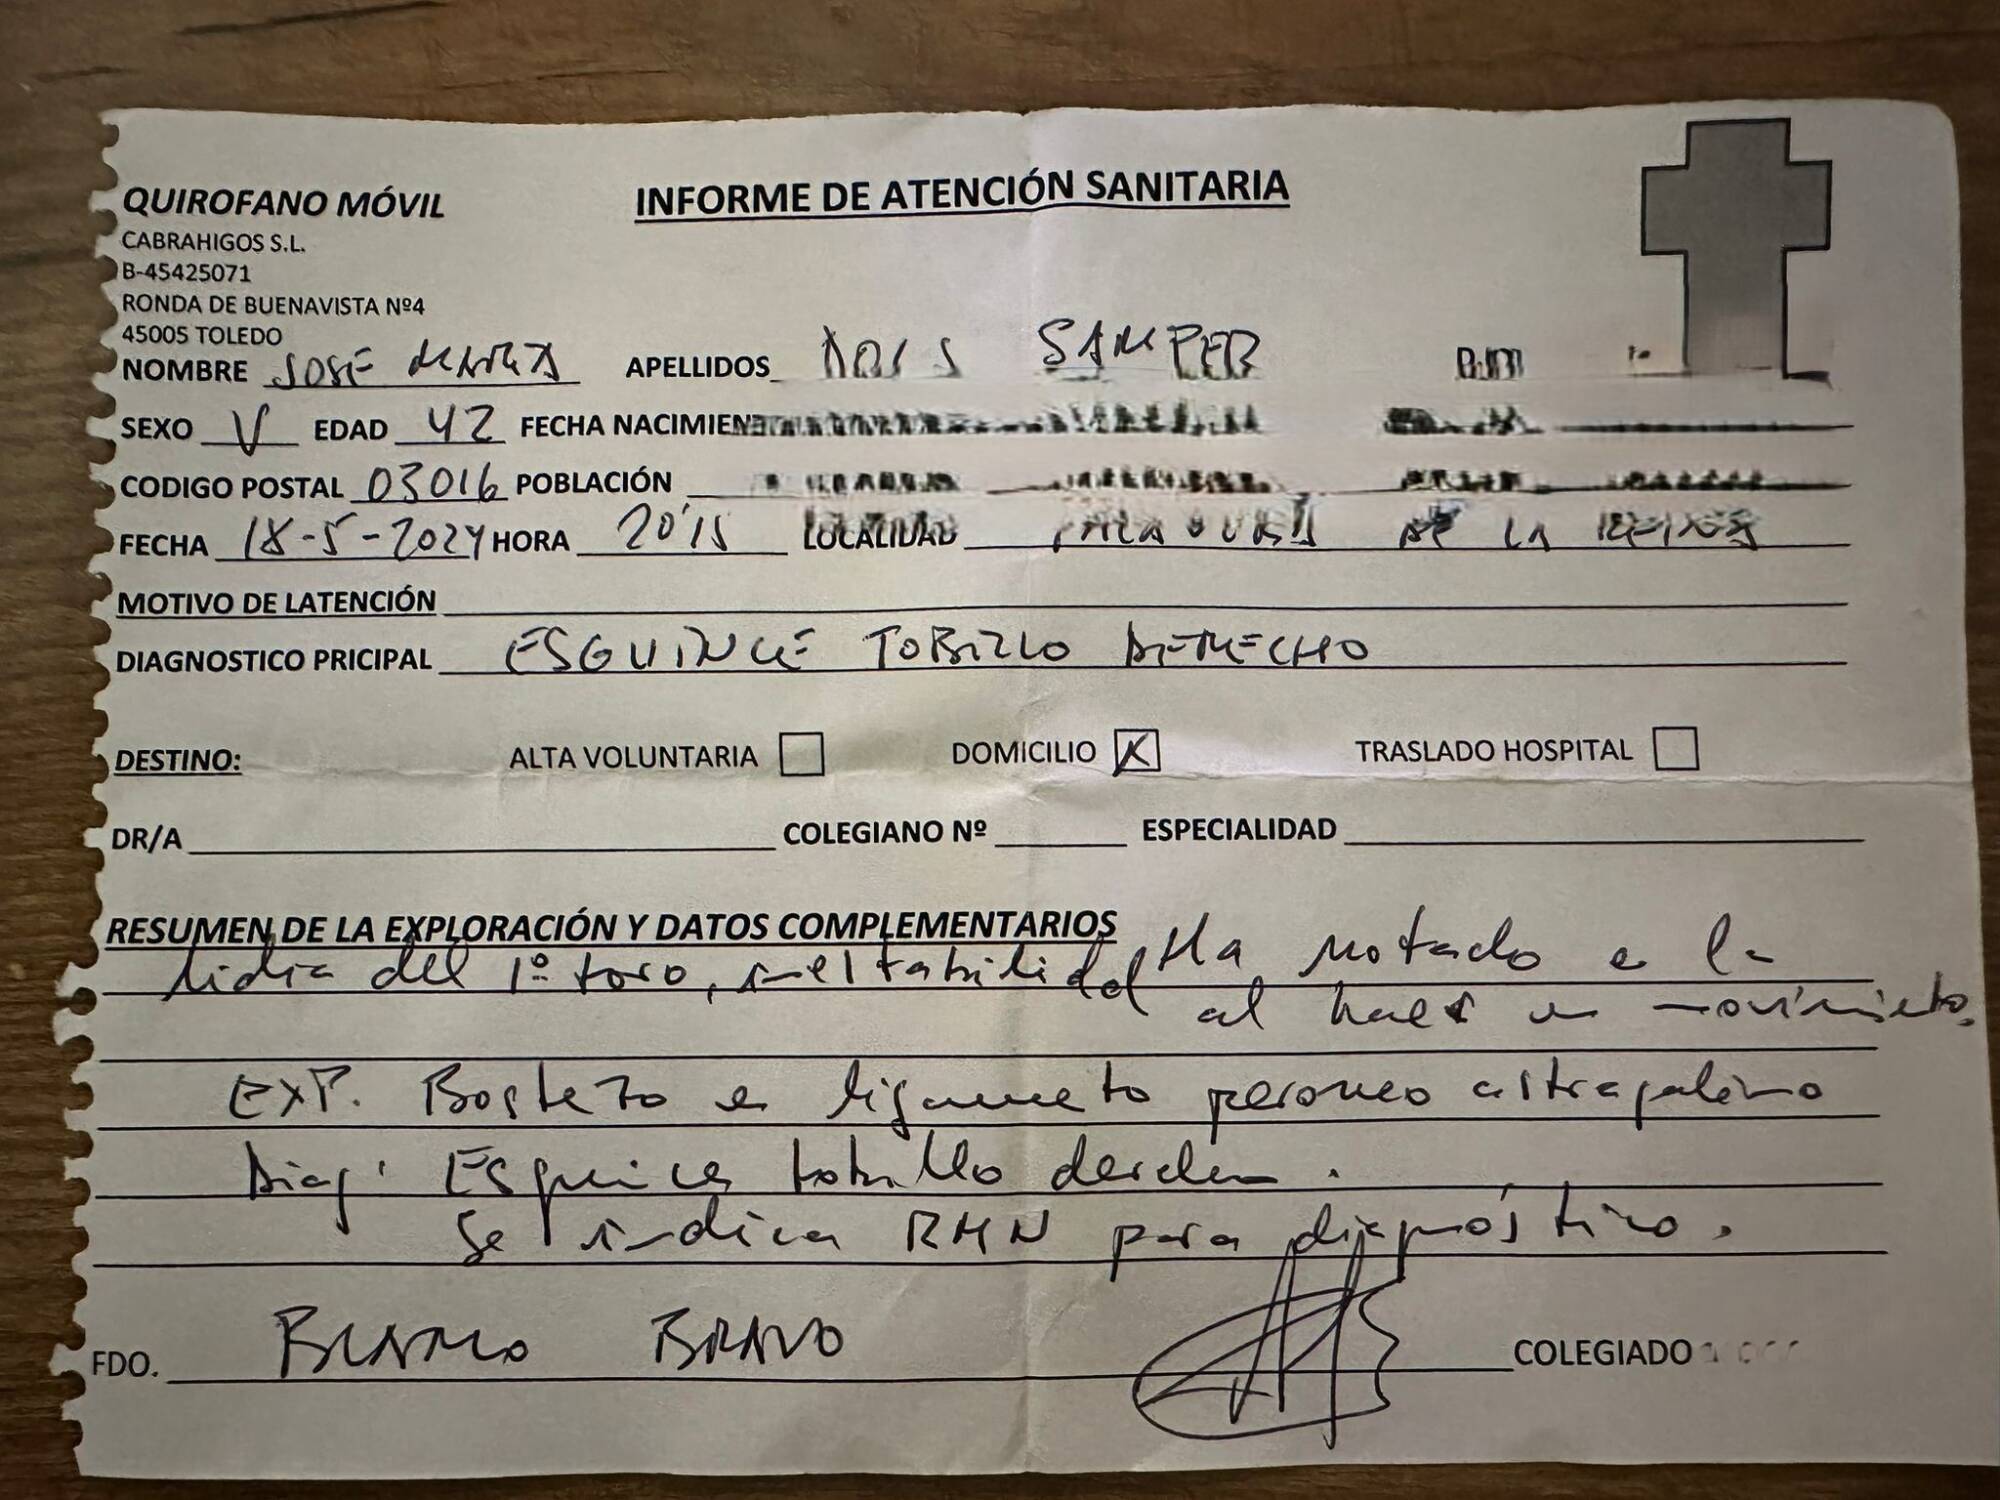 QUIROFANO MÓVIL
INFORME DE ATENCIÓN SANITARIA
CABRAHIGOS S.L.
B-45425071
RONDA DE BUENAVISTA Nº4
45005 TOLEDO
NOMBRE JOSE MARIA APELLIDOS SAMPER
SEXO V EDAD 42 FECHA NACIMIEN
CODIGO POSTAL 03016 POBLACIÓN
FECHA 18-5-2024 HORA 20'15 LOCALIDAD TALAVERA DE LA REINA
MOTIVO DE LATENCIÓN
DIAGNOSTICO PRICIPAL ESGUINCE TOBILLO DERECHO
DESTINO: ALTA VOLUNTARIA DOMICILIO X TRASLADO HOSPITAL
DR/A COLEGIANO Nº ESPECIALIDAD
RESUMEN DE LA EXPLORACIÓN Y DATOS COMPLEMENTARIOS Ha notado en la
lidia del 1º toro, inestabilidad al hacer un movimiento.
EXP. Bostezo en ligamento peroneo astragalino
Diag: Esguince tobillo derecho.
Se indica RMN para diagnóstico.
FDO. BLANCO BRAVO COLEGIADO